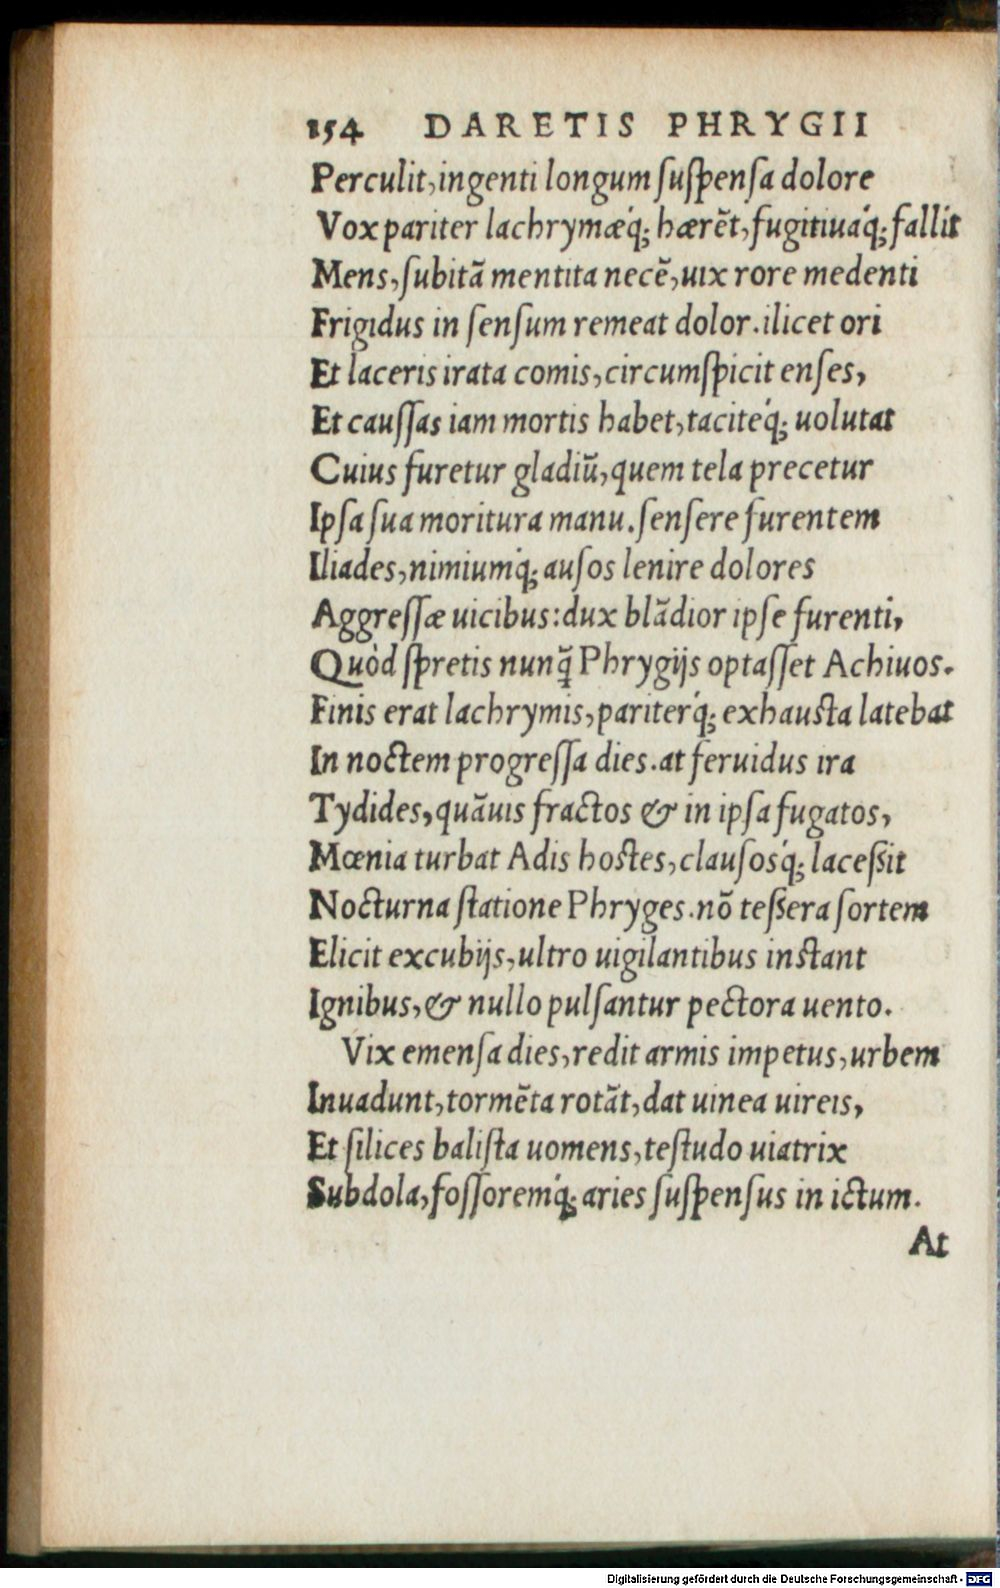 154 DARETIS PHRYGII
Perculit, ingenti longum ſuſpenſa dolore
Vox pariter lachrymæq́; hærẽt, fugitiuaq́; fallit
Mens, ſubitã mentita necẽ, uix rore medenti
Frigidus in ſenſum remeat dolor. ilicet ori
Et laceris irata comis, circumſpicit enſes,
Et cauſſas iam mortis habet, taciteq́; uolutat
Cuius furetur gladiũ, quem tela precetur
Ipſa ſua moritura manu. ſenſere furentem
Iliades, nimiumq́; auſos lenire dolores
Aggreſſæ uicibus: dux blãdior ipſe furenti,
Quòd ſpretis nunꝗ̃ Phrygijs optaſſet Achiuos.
Finis erat lachrymis, pariterq́; exhausta latebat
In noctem progreſſa dies. at feruidus ira
Tydides, quãuis fractos & in ipſa fugatos,
Mœnia turbat Adis hostes, clauſosq́; laceßit
Nocturna ſtatione Phryges. nõ teßera ſortem
Elicit excubijs, ultro uigilantibus instant
Ignibus, & nullo pulſantur pectora uento.
Vix emenſa dies, redit armis impetus, urbem
Inuadunt, tormẽta rotãt, dat uinea uireis,
Et ſilices baliſta uomens, teſtudo uiatrix
Subdola, foſſoremq́; aries ſuſpenſus in ictum.
At
Digitalisierung gefördert durch die Deutsche Forschungsgemeinschaft - DFG